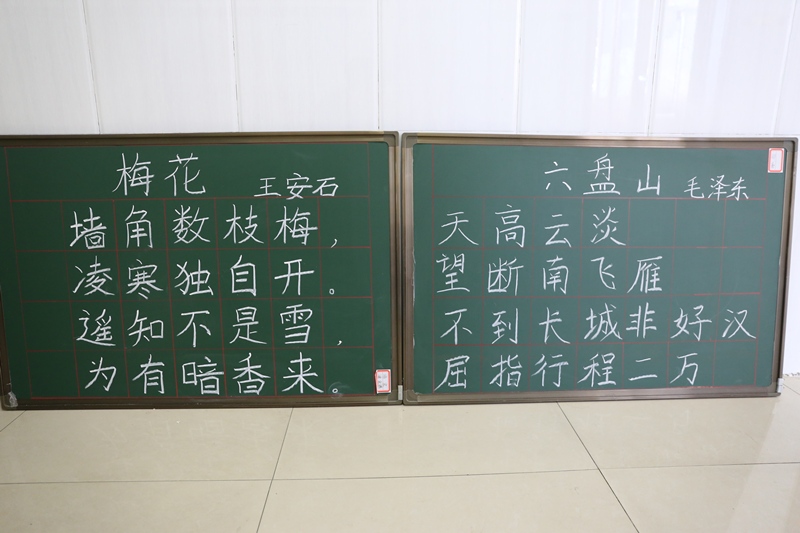 梅花 王安石
墙角数枝梅，
凌寒独自开。
遥知不是雪，
为有暗香来。
六盘山 毛泽东
天高云淡
望断南飞雁
不到长城非好汉
屈指行程二万